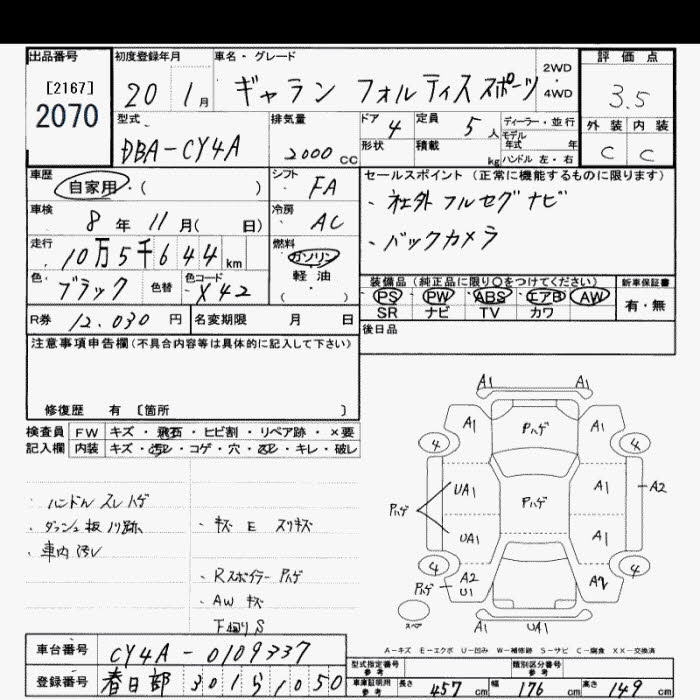 出品番号
[2167]
2070
初度登録年月
20 1月
車名・グレード
ギャラン フォルティススポーツ
2WD
4WD
評価点
3.5
外装 内装
C C
型式
DBA-CY4A
排気量
2000 CC
ドア
4
形状
定員
5 人
積載
kg
ディーラー・並行
モデル
年式 年
ハンドル 左・右
車歴
自家用・( )
シフト
FA
車検
8年11月( 日)
冷房
AC
走行
10万5千644km
燃料
ガソリン
軽油
( )
色
ブラック
色替
色コード
X42
セールスポイント(正常に機能するものに限ります)
・社外フルセグナビ
・バックカメラ
装備品(純正品に限り〇をつけてください)
PS PW ABS エアB AW
SR ナビ TV カワ
新車保証書
有・無
R券 12.030円
名変期限 月 日
後日品
注意事項申告欄(不具合内容等は具体的に記入して下さい)
修復歴 有 〔箇所 〕
検査員 FW キズ・飛石・ヒビ割・リペア跡・×要
記入欄 内装 キズ・汚レ・コゲ・穴・凹・キレ・破レ
・ハンドルスレハゲ
・ダッシュ板ノリ跡
・車内汚レ
・キズ E スリキズ
・Rスポイラー Pハゲ
・AW キズ
下廻り S
A1 A1
A1 Pハゲ A1
4 4
UA1 Pハゲ A1 A2
Pハゲ
UA1 A1
4 4
Pハゲ A2 U1 A2
スペア
A1 UA1
A-キズ E-エクボ U-凹み W-補修跡 S-サビ C-腐食 XX-交換済
車台番号 CY4A-0109337
登録番号 春日部 301 5 1050
型式指定番号
参考
類別区分番号
参考
車庫証明用
参考
長さ 457 cm 幅 176 cm 高さ 149 cm